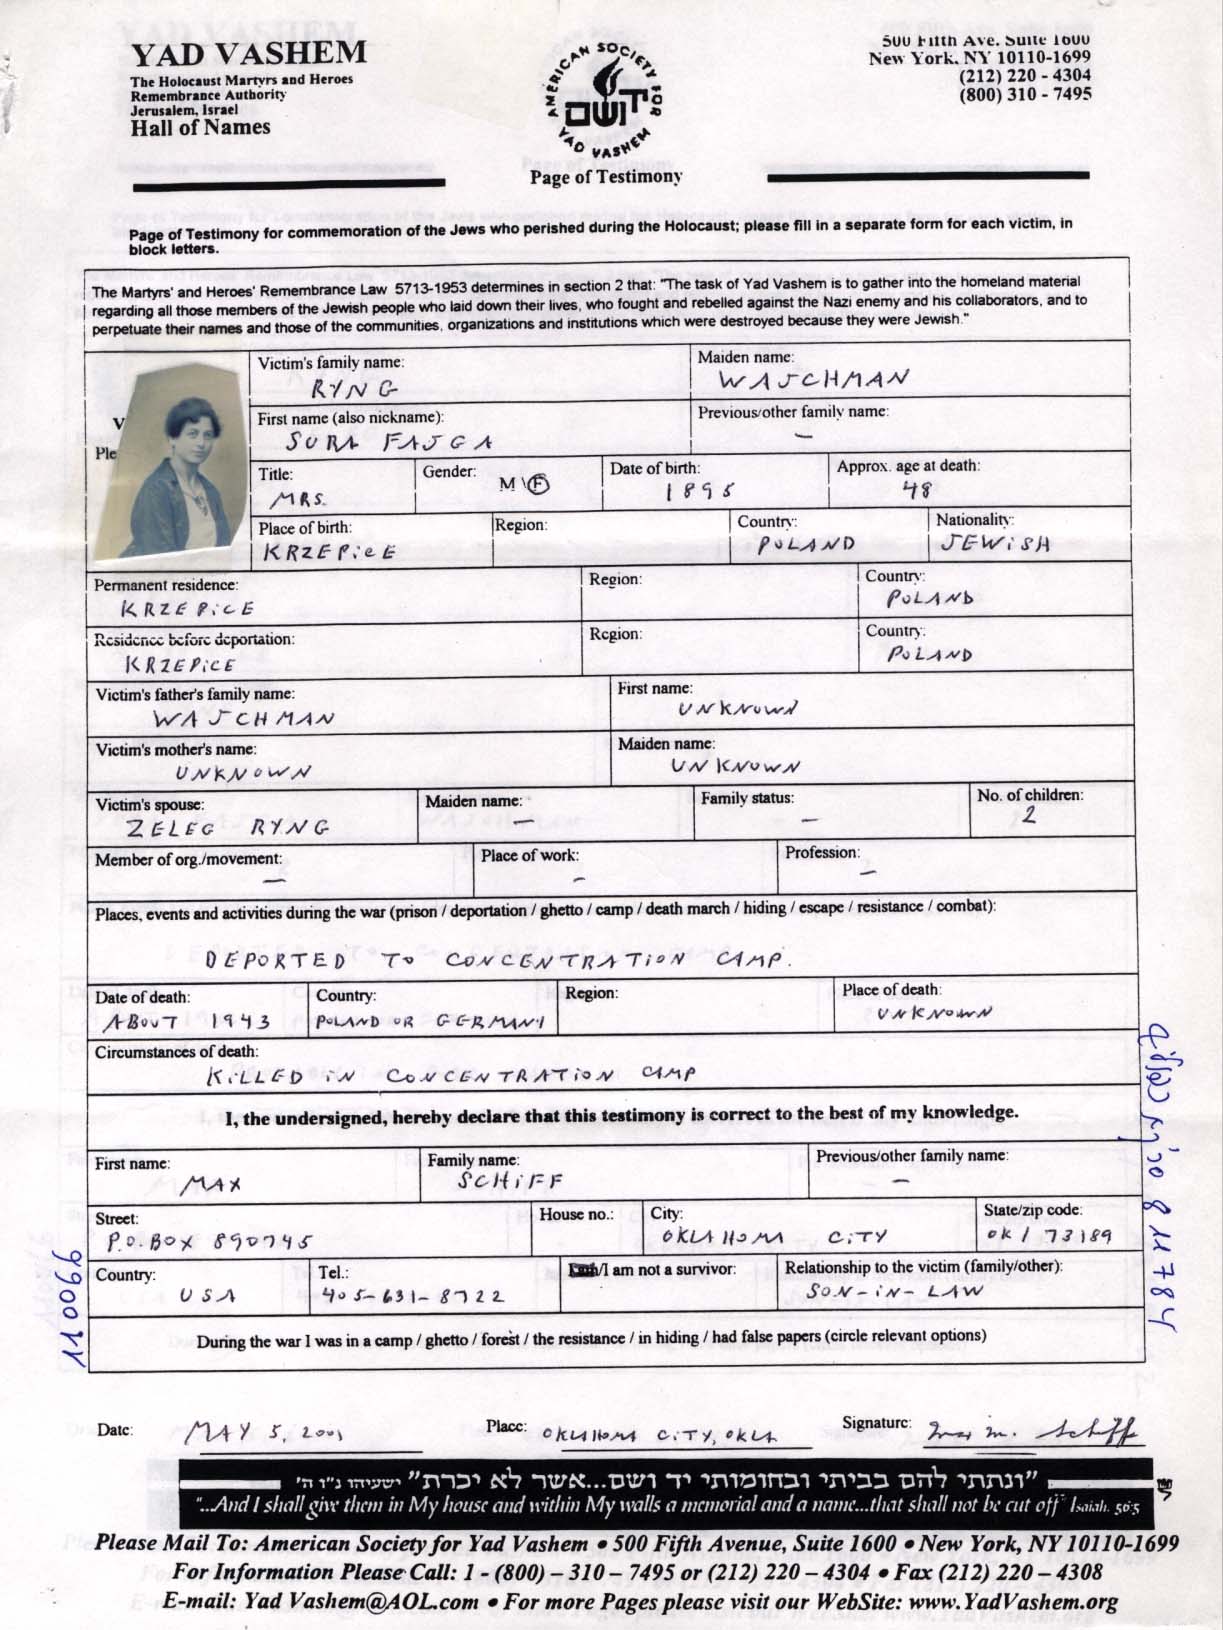 YAD VASHEM
The Holocaust Martyrs and Heroes
Remembrance Authority
Jerusalem, Israel
Hall of Names
AMERICAN SOCIETY FOR YAD VASHEM
יד ושם
Page of Testimony
500 Fifth Ave. Suite 1600
New York. NY 10110-1699
(212) 220 - 4304
(800) 310 - 7495
Page of Testimony for commemoration of the Jews who perished during the Holocaust; please fill in a separate form for each victim, in
block letters.
The Martyrs' and Heroes' Remembrance Law 5713-1953 determines in section 2 that: "The task of Yad Vashem is to gather into the homeland material
regarding all those members of the Jewish people who laid down their lives, who fought and rebelled against the Nazi enemy and his collaborators, and to
perpetuate their names and those of the communities, organizations and institutions which were destroyed because they were Jewish."
Victim's family name: Maiden name:
RYNG WAJCHMAN
V
First name (also nickname): Previous/other family name:
SURA FAJGA —
Ple
Title: Gender: M \ F Date of birth: Approx. age at death:
MRS. 1895 48
Place of birth: Region: Country: Nationality:
KRZEPICE POLAND JEWISH
Permanent residence: Region: Country:
KRZEPICE POLAND
Residence before deportation: Region: Country:
KRZEPICE POLAND
Victim's father's family name: First name:
WAJCHMAN UNKNOWN
Victim's mother's name: Maiden name:
UNKNOWN UNKNOWN
Victim's spouse: Maiden name: Family status: No. of children:
ZELEG RYNG — — 2
Member of org./movement: Place of work: Profession:
— — —
Places, events and activities during the war (prison / deportation / ghetto / camp / death march / hiding / escape / resistance / combat):
DEPORTED TO CONCENTRATION CAMP.
Date of death: Country: Region: Place of death:
ABOUT 1943 POLAND OR GERMANY UNKNOWN
Circumstances of death:
KILLED IN CONCENTRATION CAMP
I, the undersigned, hereby declare that this testimony is correct to the best of my knowledge.
First name: Family name: Previous/other family name:
MAX SCHIFF —
Street: House no.: City: State/zip code:
P.O. BOX 890745 OKLAHOMA CITY OK / 73189
Country: Tel.: /I am not a survivor: Relationship to the victim (family/other):
USA 405-631-8722 SON-IN-LAW
During the war I was in a camp / ghetto / forest / the resistance / in hiding / had false papers (circle relevant options)
Date: MAY 5, 2001 Place: OKLAHOMA CITY, OKLA Signature: Max M. Schiff
"ונתתי להם בביתי ובחומותי יד ושם...אשר לא יכרת" ישעיהו נ"ו ה'
"...And I shall give them in My house and within My walls a memorial and a name...that shall not be cut off" Isaiah. 56:5
Please Mail To: American Society for Yad Vashem • 500 Fifth Avenue, Suite 1600 • New York, NY 10110-1699
For Information Please Call: 1 - (800) – 310 – 7495 or (212) 220 – 4304 • Fax (212) 220 – 4308
E-mail: Yad Vashem@AOL.com • For more Pages please visit our WebSite: www.YadVashem.org